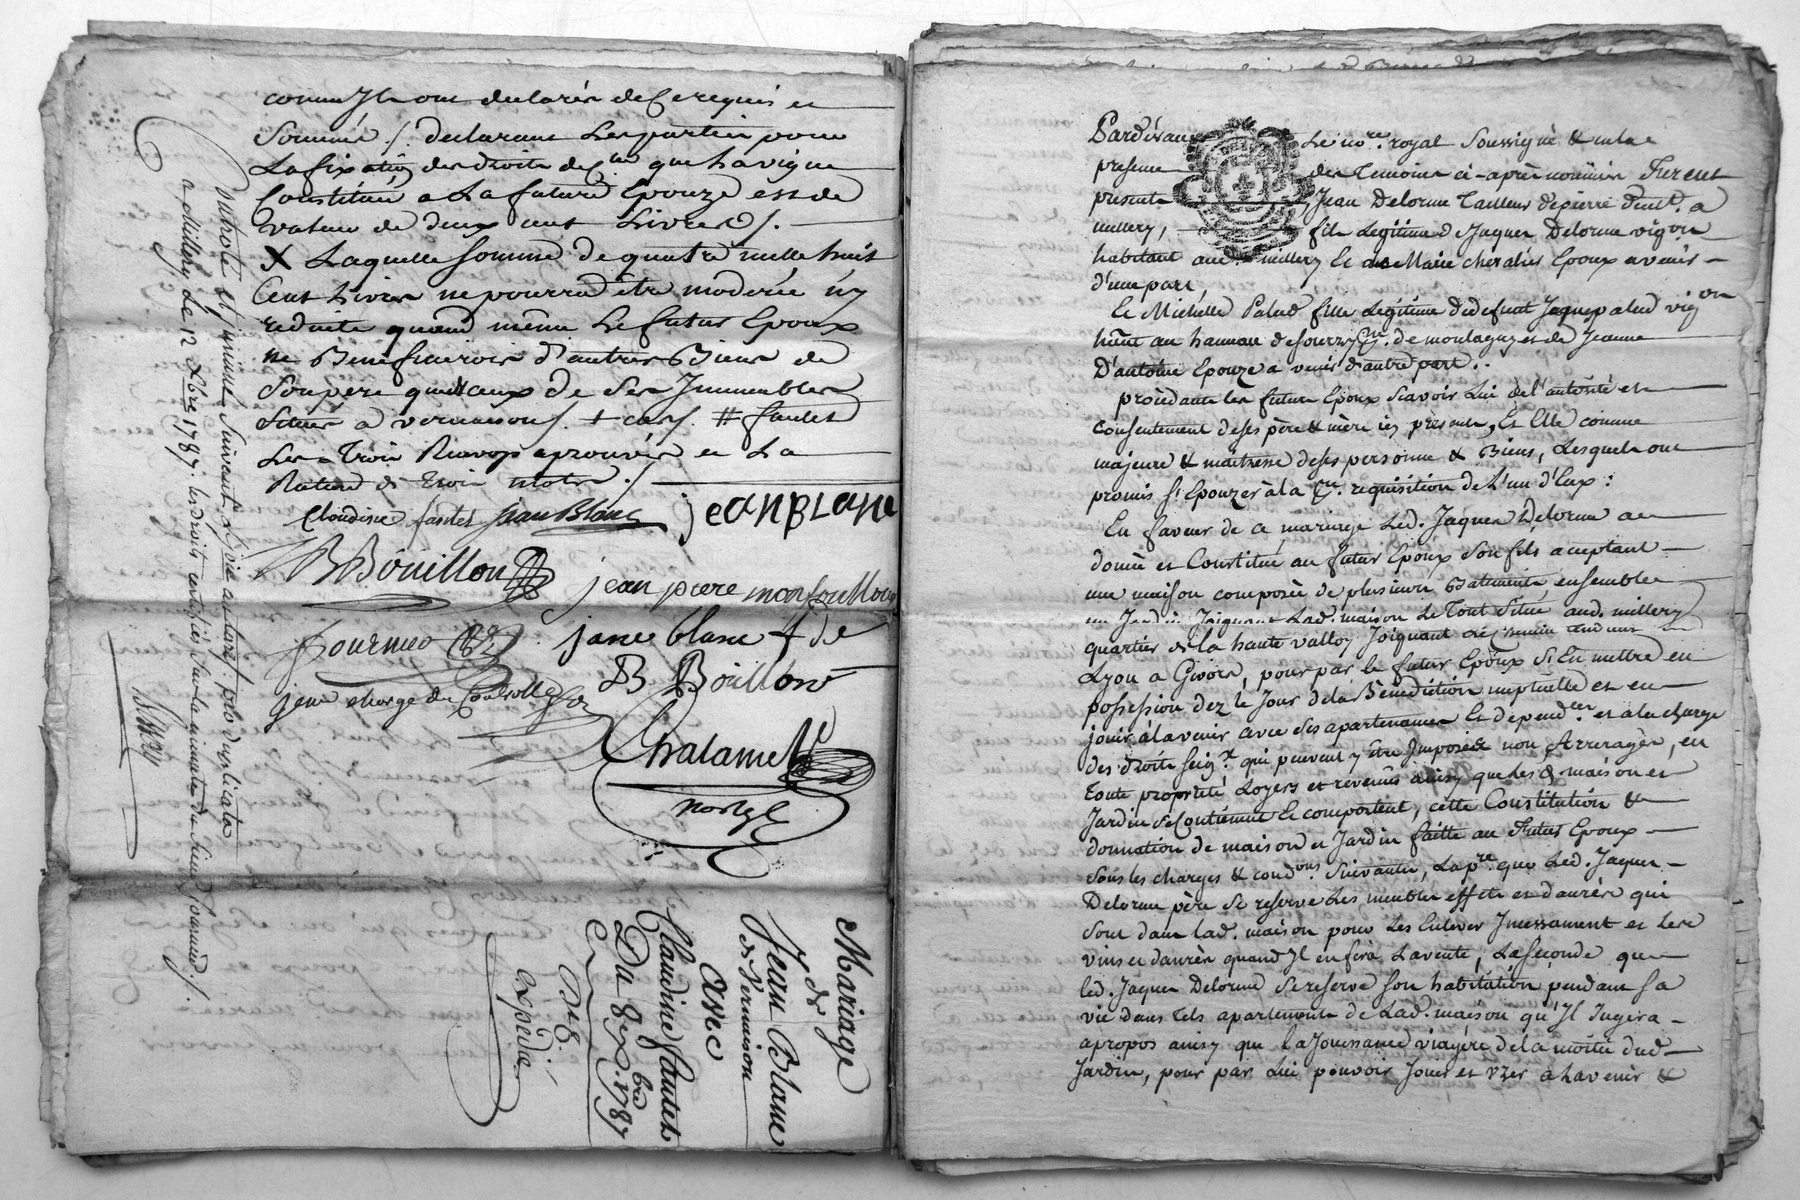 comme Ils ont declarés de Ce requis et
Sommés ./. declarant Les parties pour
La fixation des droits de que La vigne
Constituée a La future Epouze est de
valeur de deux cent Livres /.
X Laquelle Somme de quatre mille huit
Cent Livres ne pourra être moderée ny
reduite quand même Le futur Epoux
ne Beneficieroit d'autres Biens de
Son pere que ceux de Ses Immeubles
Situés a vernaison /. + /. # fautet
Les Trois Renvoys aprouvés et La
Rature de Trois mots ./.
Claudine fautet jean Blanc jeAnBLAnc
B Bouillon jean piere monfoulloux
fournud jane blanc f de
B Bouillon
Chalamel
nore
Controlé et insinué Suivant au tarif
a Millery Le 12 Xbre 1787. les droits certifiés Sur la minute de Sieur fournud /.
Mariage
de
Jean Blanc
de Vernaison
avec
Claudine fautet
Du 8 Xbre 1787
Expediée
Pardevant Le no.re royal Soussigné & en la
presence des Temoins ci-après nommés Furent
presents Jean Delorme Tailleur de pierre demt. a
millery, fils Legitime de Jaques Delorme vigon
habitant aud. millery Et de Marie chevalier Epoux avenir
d'une part,
Et Michelle Palud fille Légitime de defunt Jaques palud vigon
hãnt au hameau de Sourzy de montagny et de Jeanne
D'antoine Epouze a venir d'autre part..
procedants les futurs Epoux Scavoir Lui de l'autorité et
Consentement de ses père & mère icy présents, Et Elle comme
majeure & maitresse de ses personne & Biens, Lesquels ont
promis S'Epouzer à la requisition de L'un d'Eux:
En faveur de ce mariage Led. Jaques Delorme a
donné et Constitué au futur Epoux Son fils acceptant
une maison composée de plusieurs Batiments ensemble
un Jardin Joignant Lad. maison Le Tout Situé aud. millery
quartier de la haute valloy Joignant Le chemin tendant de
Lyon a Givors, pour par le futur Epoux S'En mettre en
possession dez le Jour de la Bénédiction nuptialle et en
jouir à l'avenir avec Ses apartenances Et dépendces. et a la charge
des droits Seig.x qui peuvent y Etre Imposés non Arreragés, en
toute proprieté Loyers et revenus ainsy que Les d. maison et
Jardin Se Contiennent Et comportent, cette Constitution &
donnation de maison et Jardin faitte au Futur Epoux
Sous les charges & condons. Suivantes, La pre. que Led. Jaques
Delorme père Se reserve Les meubles effets et danrées qui
Sont dans Lad. maison pour Les Enlever Incessament et Les
vins et danrées quand Il en fera La vente, La Seconde que
Led. Jaques Delorme Se reserve Son habitation pendant Sa
vie dans tels apartements de Lad. maison qu'Il Jugera
apropos ainsy que La Jouissance viagère de la moitié dud.
Jardin, pour par Lui pouvoir Jouir et uzer à L'avenir &